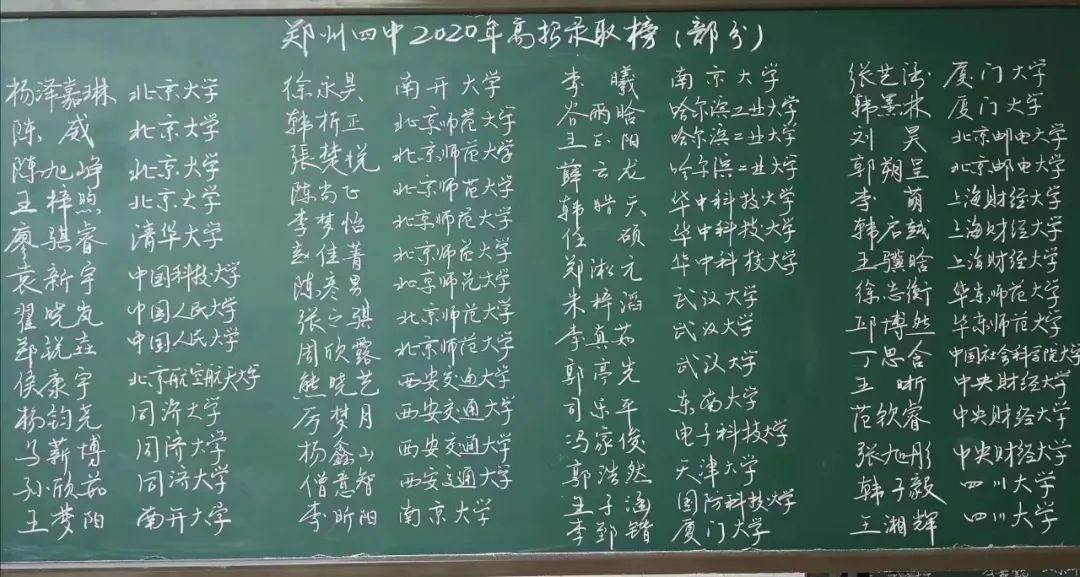 郑州四中2020年高招录取榜（部分）
杨泽嘉琳 北京大学
陈威 北京大学
陈旭峥 北京大学
王梓煦 北京大学
廖骐睿 清华大学
袁新宇 中国科技大学
翟晓岚 中国人民大学
郑锐垚 中国人民大学
侯康宇 北京航空航天大学
杨钧尧 同济大学
马薪博 同济大学
孙欣茹 同济大学
王梦阳 南开大学
徐永昊 南开大学
韩析正 北京师范大学
張楚悦 北京师范大学
陈尚正 北京师范大学
李梦怡 北京师范大学
佳菁 北京师范大学
陈彦男 北京师范大学
张之骐 北京师范大学
周欣露 北京师范大学
熊晓艺 西安交通大学
厉梦月 西安交通大学
杨鑫山 西安交通大学
僧意智 西安交通大学
李昕阳 南京大学
李曦 南京大学
谷雨晗 哈尔滨工业大学
王正阳 哈尔滨工业大学
薛云龙 哈尔滨工业大学
韩皓天 华中科技大学
任硕 华中科技大学
郑淞元 华中科技大学
朱梓滔 武汉大学
李真茹 武汉大学
郭亭先 武汉大学
司乐平 东南大学
冯家俊 电子科技大学
郭浩然 天津大学
王子涵 国防科技大学
李郅锴 厦门大学
张艺 厦门大学
韩熹林 厦门大学
刘昊 北京邮电大学
郭朔呈 北京邮电大学
李萌 上海财经大学
韩启越 上海财经大学
王骥晗 上海财经大学
徐志衡 华东师范大学
邱博然 华东师范大学
丁思含 中国社会科学院大学
王昕 中央财经大学
范钦睿 中央财经大学
张旭彤 中央财经大学
韩子毅 四川大学
王湘辉 四川大学